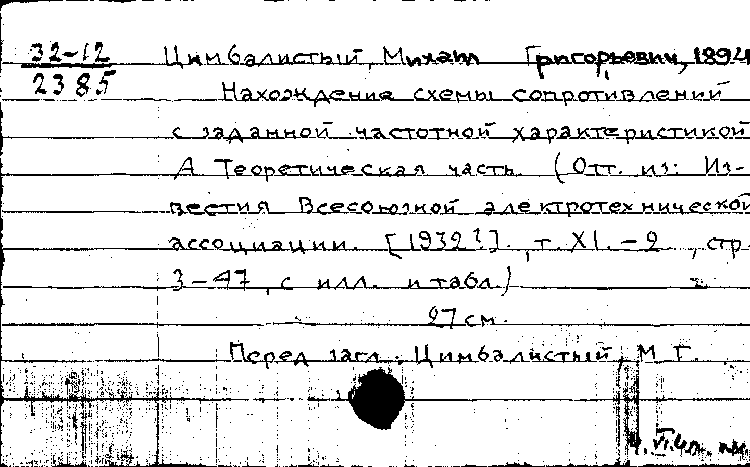 32-12
2385
Цимбалистый, Михаил Григорьевич, 1894
Нахождение схемы сопротивлений
с заданной частотной характеристикой
А Теоретическая часть. (Отт. из: Из-
вестия Всесоюзной электротехнической
ассоциации. [1932?]., т. XI. - 2, стр.
3-47, с илл. и табл.)
27 см.
Перед загл.: Цимбалистый, М. Г.